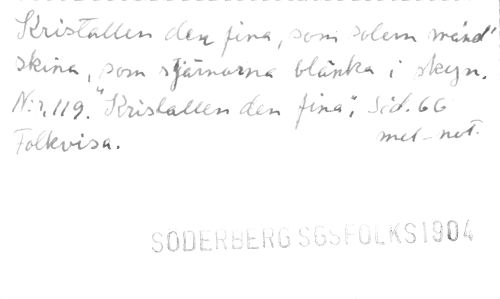 Kristallen den fina, som solem månd'
skina, som stjärnorna blänka i skyn.
N:r 119. "Kristallen den fina", Sid. 66
Folkvisa. mel-not.
SÖDERBERG SGSFOLKS1904